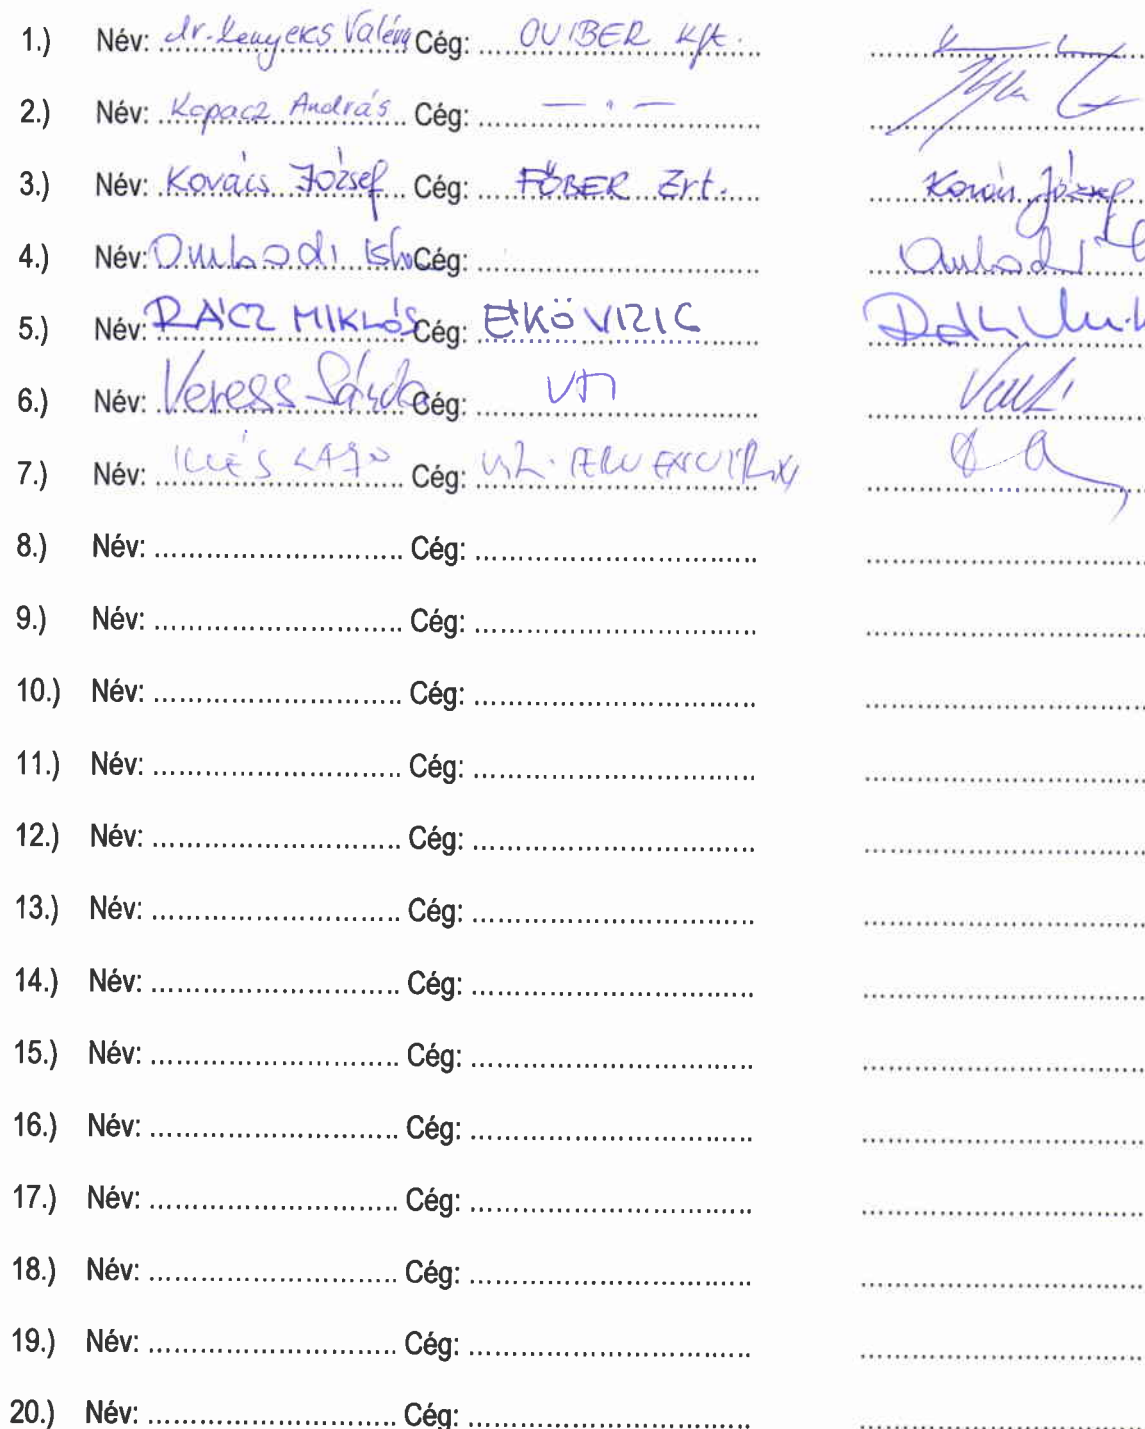 1.) Név: dr. Kenyeres Valéria Cég: OVIBER Kft.
2.) Név: Kopacz András Cég: — " —
3.) Név: Kovács József Cég: FŐBER Zrt. Kovács József
4.) Név: Ombodi Cég: .......... Ombodi
5.) Név: RÁCZ MIKLÓS Cég: ÉKÖVIZIG
6.) Név: Veress Sándor Cég:
7.) Név: ILLÉS Cég:
8.) Név: .......... Cég: ..........
9.) Név: .......... Cég: ..........
10.) Név: .......... Cég: ..........
11.) Név: .......... Cég: ..........
12.) Név: .......... Cég: ..........
13.) Név: .......... Cég: ..........
14.) Név: .......... Cég: ..........
15.) Név: .......... Cég: ..........
16.) Név: .......... Cég: ..........
17.) Név: .......... Cég: ..........
18.) Név: .......... Cég: ..........
19.) Név: .......... Cég: ..........
20.) Név: .......... Cég: ..........